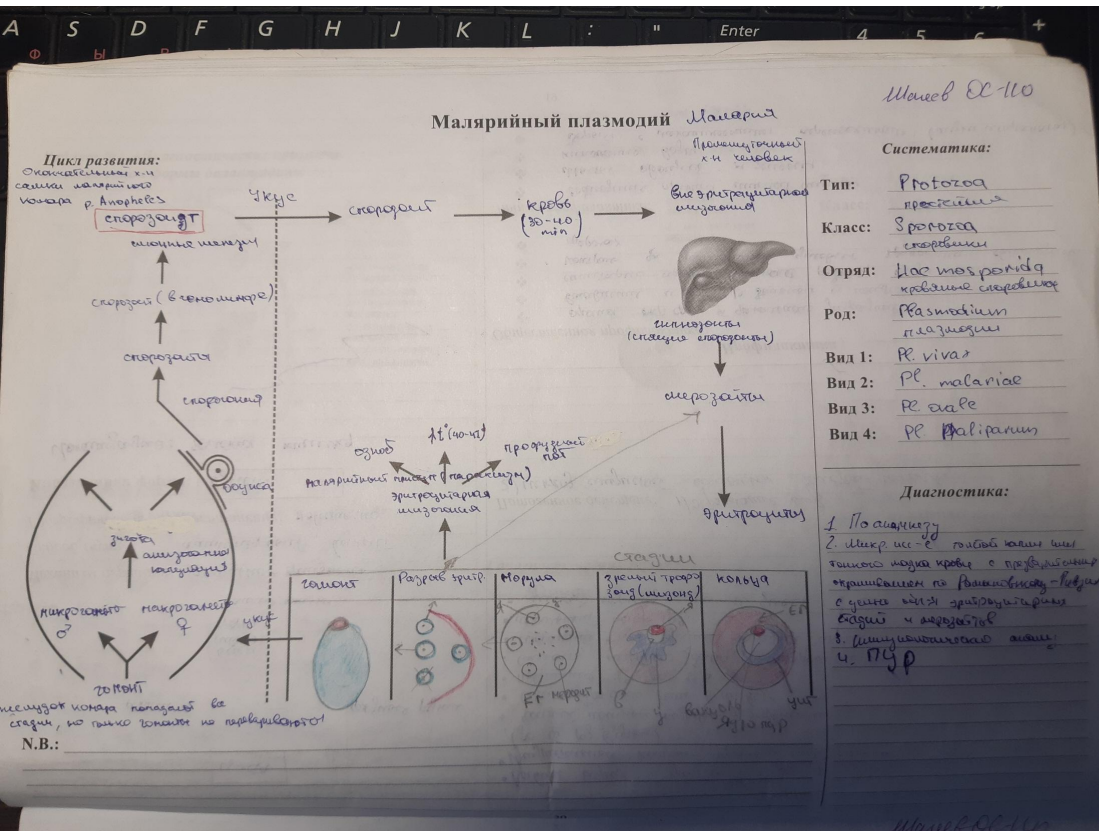 A S D F G H J K L : " Enter 4 5 6 +
Ф Ы В
ОС-110
Малярийный плазмодий Малярия
Цикл развития:
Окончательный х-н
самки малярийного
комара р. Anopheles
спорозоит
слюнные железы
спорозоит (в гемолимфе)
спорозоиты
спорогония
ооциста
зигота
микрогамета макрогамета
♂ ♀
гамонт
желудок комара попадают все
стадии, но только гамонты не перевариваются!
укус
спорозоит
кровь
(30-40
min)
Промежуточный
х-н человек
вне эритроцитарная
шизогония
гипнозоиты
(спящие спорозоиты)
мерозоиты
эритроциты
озноб
t° (40-41)
профузный
пот
малярийный приступ (пароксизм)
эритроцитарная
шизогония
стадии
гамонт
Разрыв эритр.
Морула
зрелый трофо
зоид (шизонт)
кольца
укус
Er мерозоит
вакуоль
ядро
цит
N.B.:
Систематика:
Тип: Protozoa
простейшие
Класс: Sporozoa
споровики
Отряд: Haemosporida
кровяные споровики
Род: Plasmodium
плазмодии
Вид 1: Pl. vivax
Вид 2: Pl. malariae
Вид 3: Pl. ovale
Вид 4: Pl. faliparum
Диагностика:
1. По анамнезу
2. Микр. исс-е толстой капли или
тонкого мазка крови с предварительным
окрашиванием по Романовскому-
с целью эритроцитарных
стадий и мерозоитов
3. Иммунологический
4. ПЦР